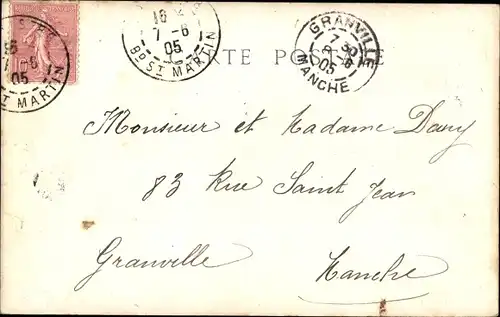 CARTE POSTALE
16
7-6
05
Bd ST MARTIN
7-6
05
ST MARTIN
GRANVILLE
05
MANCHE
Monsieur et Madame
83 Rue Saint Jean
Granville Manche